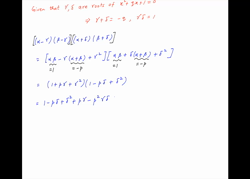 Given that γ, δ are roots of x²+2x+1=0
⇒ γ+δ = -2, γδ = 1
[(α-γ)(β-γ)][(α+δ)(β+δ)]
= [αβ - γ(α+β) + γ²] [αβ + δ(α+β) + δ²]
=1 =-p =1 =-p
= (1+pγ+γ²)(1-pδ+δ²)
= 1-pδ+δ²+pγ-p²γδ